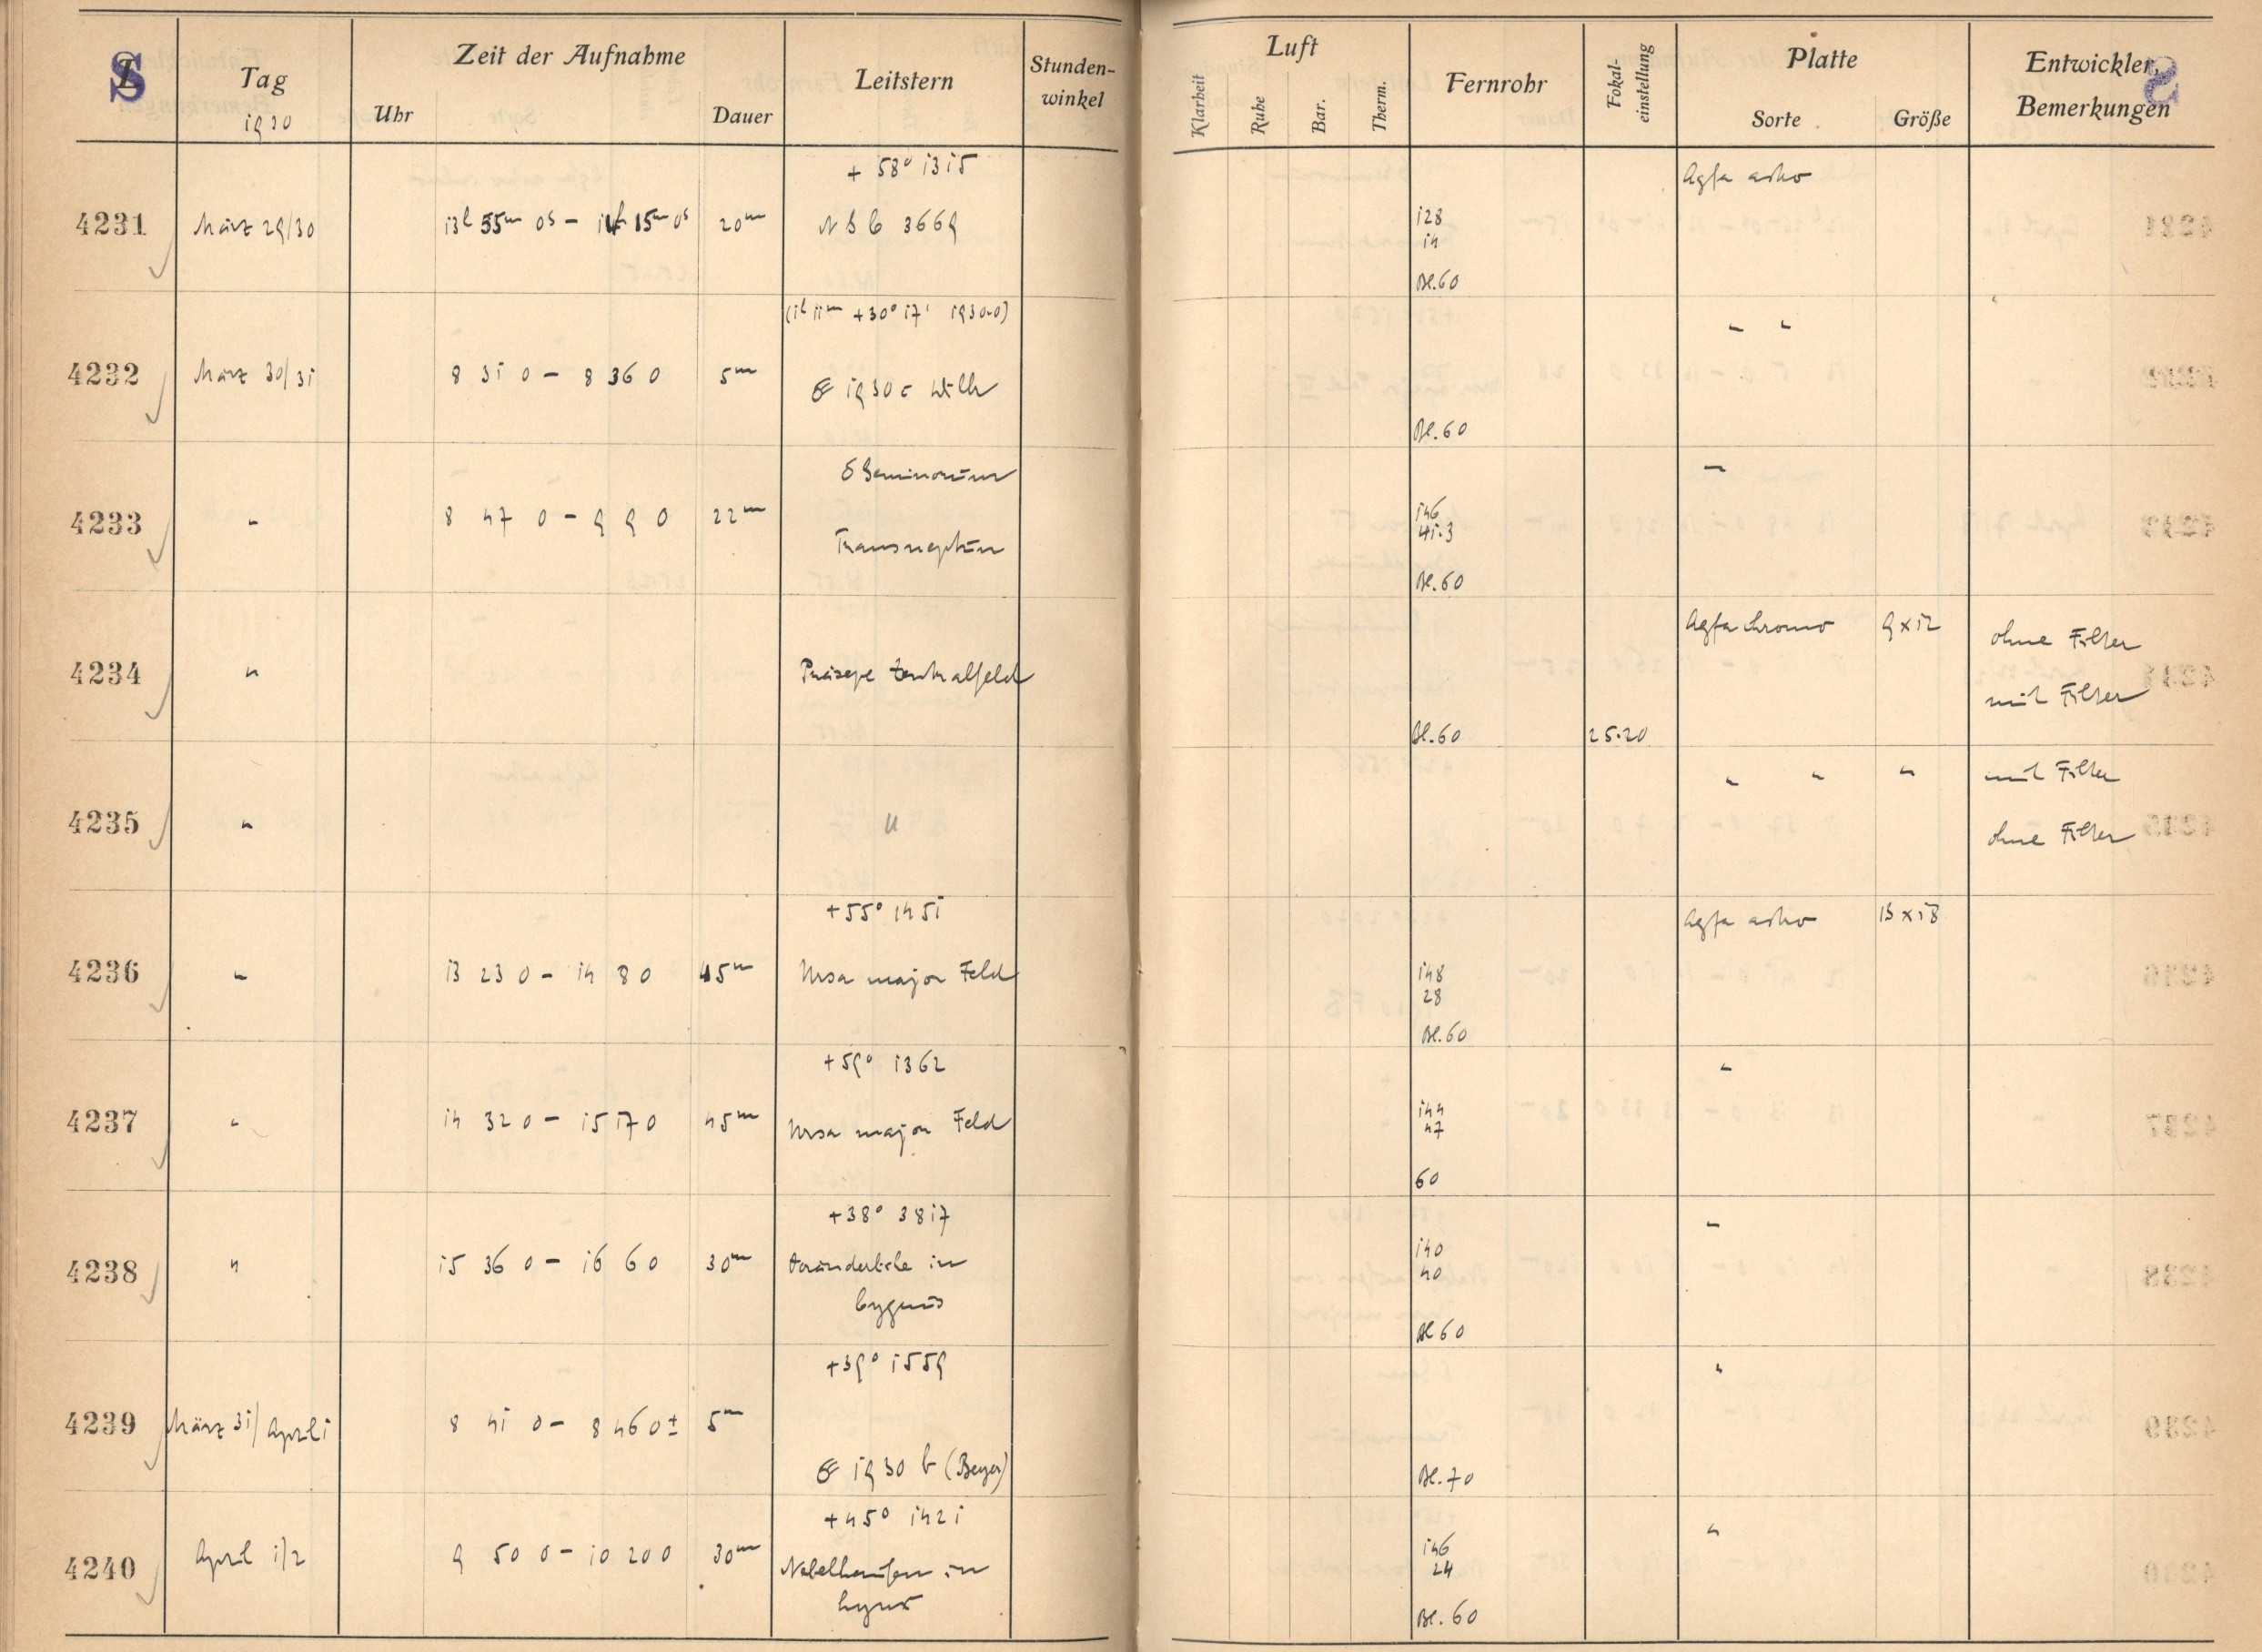 S
Tag
1930
Zeit der Aufnahme
Uhr
Dauer
Leitstern
Stunden-
winkel
Luft
Klarheit
Ruhe
Bar.
Therm.
Fernrohr
Fokal-
einstellung
Platte
Sorte
Größe
Entwickler,
Bemerkungen
+ 58° 1315
4231 März 29/30 13h 55m 0s – 14h 15m 0s 20m N G C 3669
Agfa astro
128
14
Bl. 60
(1h 11m +30° 17' 1930.0)
4232 März 30/31 8 31 0 – 8 36 0 5m
1930 c Wilk
" "
Bl. 60
δ Geminorum
4233 " 8 47 0 – 9 9 0 22m
Transneptun
"
146
41.3
Bl. 60
4234 " Präsepe Zentralfeld
Agfa chromo 9x12 ohne Filter
mit Filter
Bl. 60 25.20
4235 " "
" " " mit Filter
ohne Filter
+55° 1451
4236 " 13 23 0 – 14 8 0 45m Ursa major Feld
Agfa astro 13x18
148
28
Bl. 60
+59° 1362
4237 " 14 32 0 – 15 17 0 45m Ursa major Feld
"
144
47
60
+38° 3817
4238 " 15 36 0 – 16 6 0 30m Veränderliche in
Cygnus
"
140
40
Bl 60
+39° 1559
4239 März 31/April 1 8 41 0 – 8 46 0 ± 5m
1930 b (Beyer)
"
Bl. 70
+45° 1421
4240 April 1/2 9 50 0 – 10 20 0 30m Nebelhaufen in
Lynx
"
146
24
Bl. 60